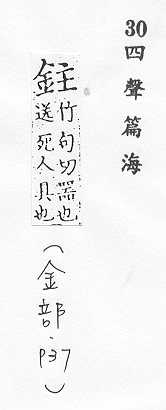 30四聲篇海
鉒
竹句切器也
送死人具也
(金部.p37)